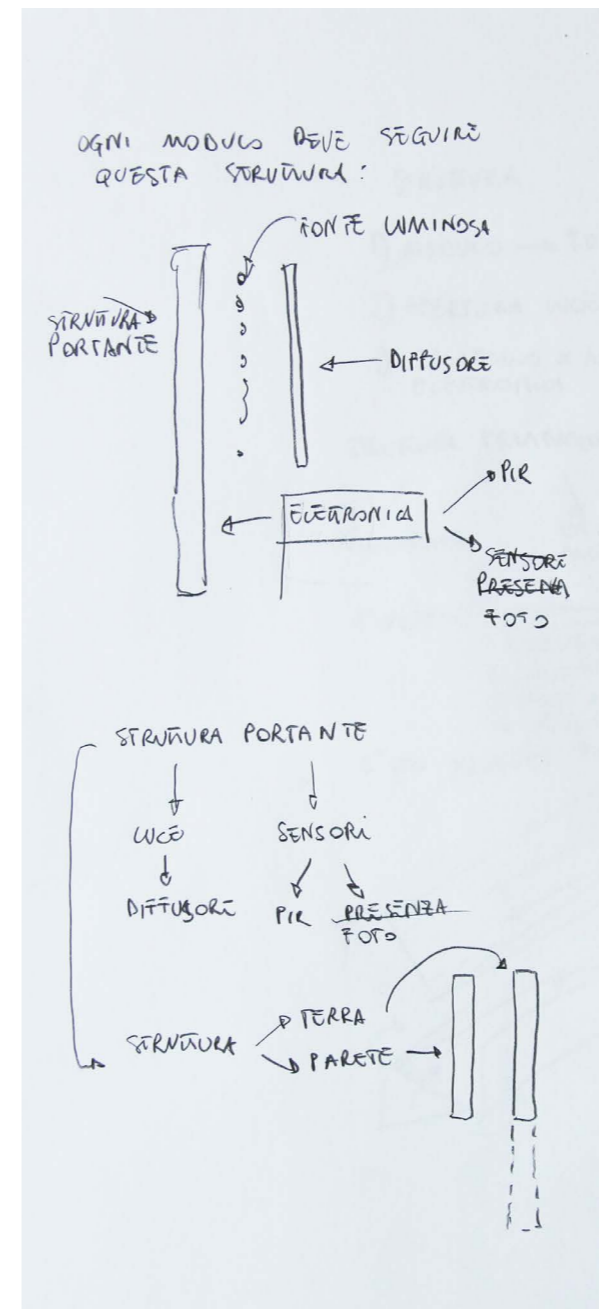 OGNI MODULO DEVE SEGUIRE
QUESTA STRUTTURA:
FONTE LUMINOSA
STRUTTURA
PORTANTE
DIFFUSORE
ELETTRONICA
PIR
SENSORE
PRESENZA
FOTO
STRUTTURA PORTANTE
LUCE SENSORI
DIFFUSORE PIR PRESENZA
FOTO
STRUTTURA
TERRA
PARETE